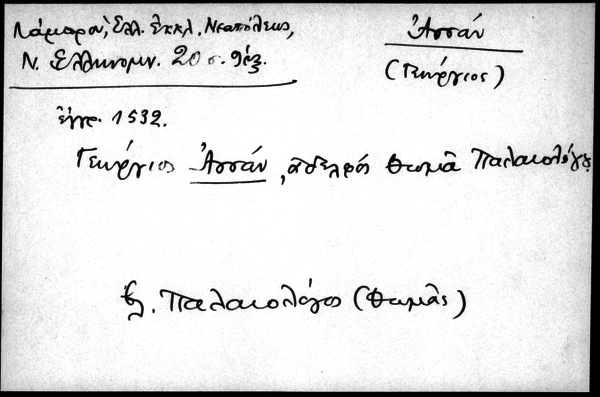 Λάμπρου, Ελλ. Εκκλ. Νεαπόλεως,
Ν. Ελληνομν. 20 σ.
Ἀσσάν
(Γεώργιος)
ἔγγρ. 1532.
Γεώργιος Ἀσσάν, ἀδελφός Θωμᾶ Παλαιολόγου
βλ. Παλαιολόγος (Θωμᾶς)